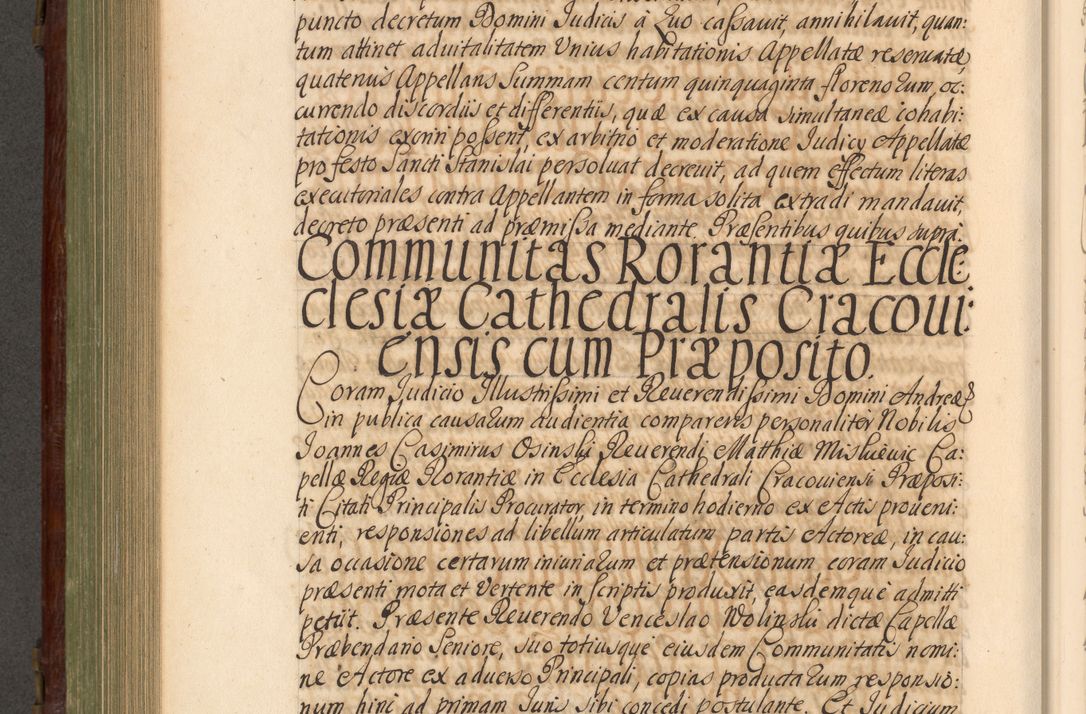 puncto decretum Domini Judicis à Quo cassavit, annihilavit, quan:
tum attinet advitalitatem Unius habitationis Appellatæ reservatæ,
quatenus Appellans Summam centum quinquaginta florenorum, oc:
currendo discordiis et differentiis, quæ ex causa simultaneæ cohabi:
tationis exoriri possent, ex arbitrio et moderatione Judicij Appellatæ
pro festo Sancti Stanislai persolvat decrevit, ad quem effectum literas
executoriales contra Appellantem in forma solita extradi mandavit,
decreto præsenti ad præmissa mediante. Præsentibus quibus supra.
Communitas Rorantiæ Eccle:
clesiæ Cathedralis Cracovi:
ensis cum Præposito.
Coram Judicio Illustrissimi et Reverendissimi Domini Andreæ
in publica causarum audientia comparens personaliter Nobilis
Joannes Casimirus Osinski Reverendi Matthiæ Ca:
pellæ Regiæ Rorantiæ in Ecclesia Cathedrali Cracoviensi Præposi:
ti Citati Principalis Procurator, in termino hodierno ex Actis proveni:
enti, responsiones ad libellum articulatum partis Actoreæ, in cau:
sa occasione certarum iniuriarum et prætensionum coram Judicio
præsenti mota et vertente in scriptis produxit, easdemque admitti
petiit. Præsente Reverendo Venceslao Wolinski dictæ Capellæ
Præbendario Seniore, suo totiusque eiusdem Communitatis nomi:
ne Actore ex adverso Principali, copias productarum responsio:
num hinc ad primam Juris sibi concedi postulante. Et Judicium